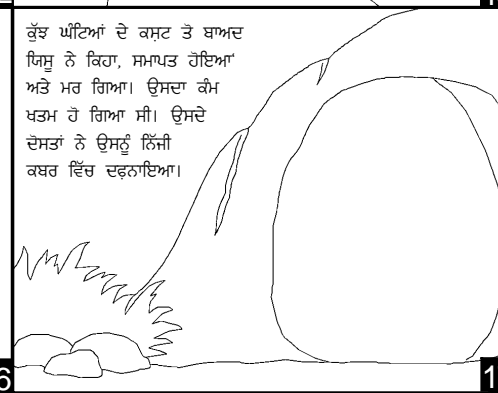 ਕੁੱਝ ਘੰਟਿਆਂ ਦੇ ਕਸ਼ਟ ਤੋ ਬਾਅਦ
ਯਿਸੂ ਨੇ ਕਿਹਾ, ਸਮਾਪਤ ਹੋਇਆ'
ਅਤੇ ਮਰ ਗਿਆ। ਉਸਦਾ ਕੰਮ
ਖਤਮ ਹੋ ਗਿਆ ਸੀ। ਉਸਦੇ
ਦੋਸਤਾਂ ਨੇ ਉਸਨੂੰ ਨਿੱਜੀ
ਕਬਰ ਵਿੱਚ ਦਫ਼ਨਾਇਆ।
6
1